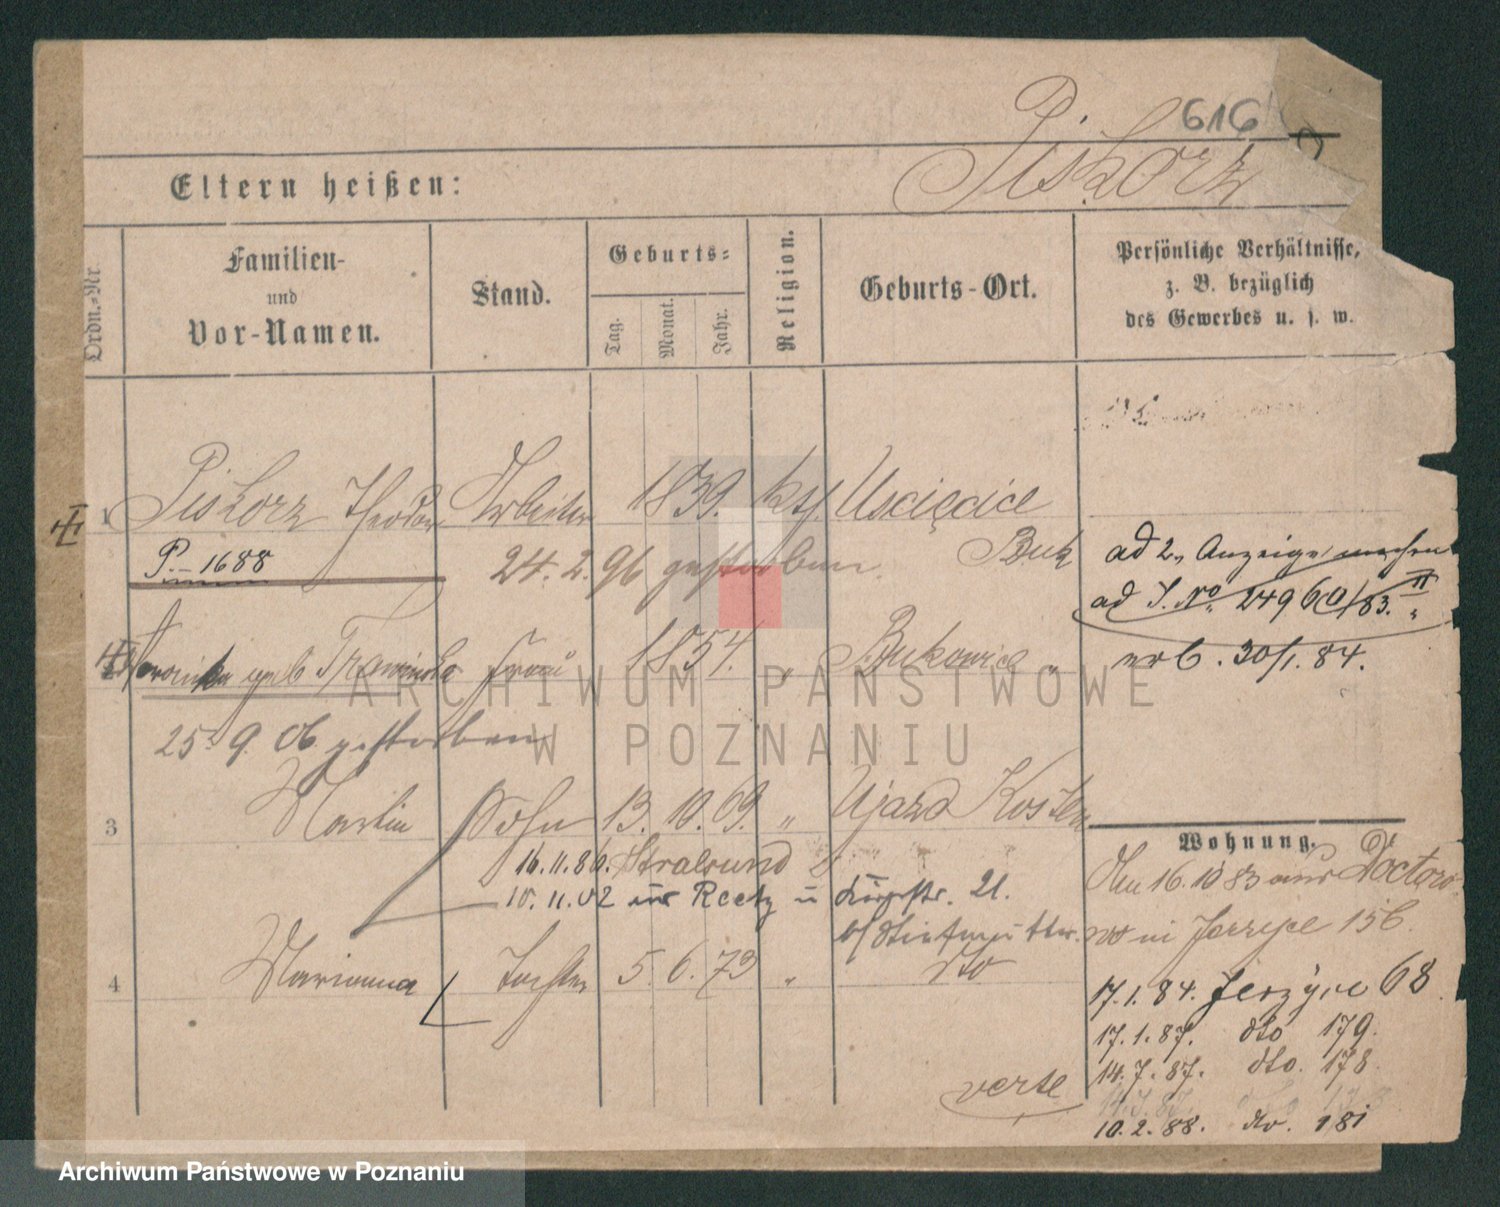 616
Piskorz
Eltern heißen:
Ordn.-Nr
Familien-
und
Vor-Namen.
Stand.
Geburts-
Tag.
Monat.
Jahr.
Religion.
Geburts-Ort.
Persönliche Verhältnisse,
z. B. bezüglich
des Gewerbes u. s. w.
1 Piskorz Theodor Arbeiter 1839. kth. Uscięcice
P. 1688 24. 2. 96 gestorben. Buk
ad 2, Anzeige machen
ad J. No. 24960/83. II
erl. 30/1. 84.
Veronika geb Frau 1854. " Bukowiec "
25. 9. 06 gestorben
3 Martin Sohn 13. 10. 69. " Ujazd Kosten
16.11.86. Stralsund
10. 11. 02 aus Reetz u 21.
b/ Stiefmutter.
4 Marianna Tochter 5. 6. 73 " dto
verte
Wohnung.
Den 16.10 83 aus Doctoro
wo in Jerzyce 156.
17.1.84. Jerzyce 68
17.1.87. dto 179.
14.7.87. dto. 178
10.2.88. dto. 181
ARCHIWUM PAŃSTWOWE
W POZNANIU
Archiwum Państwowe w Poznaniu